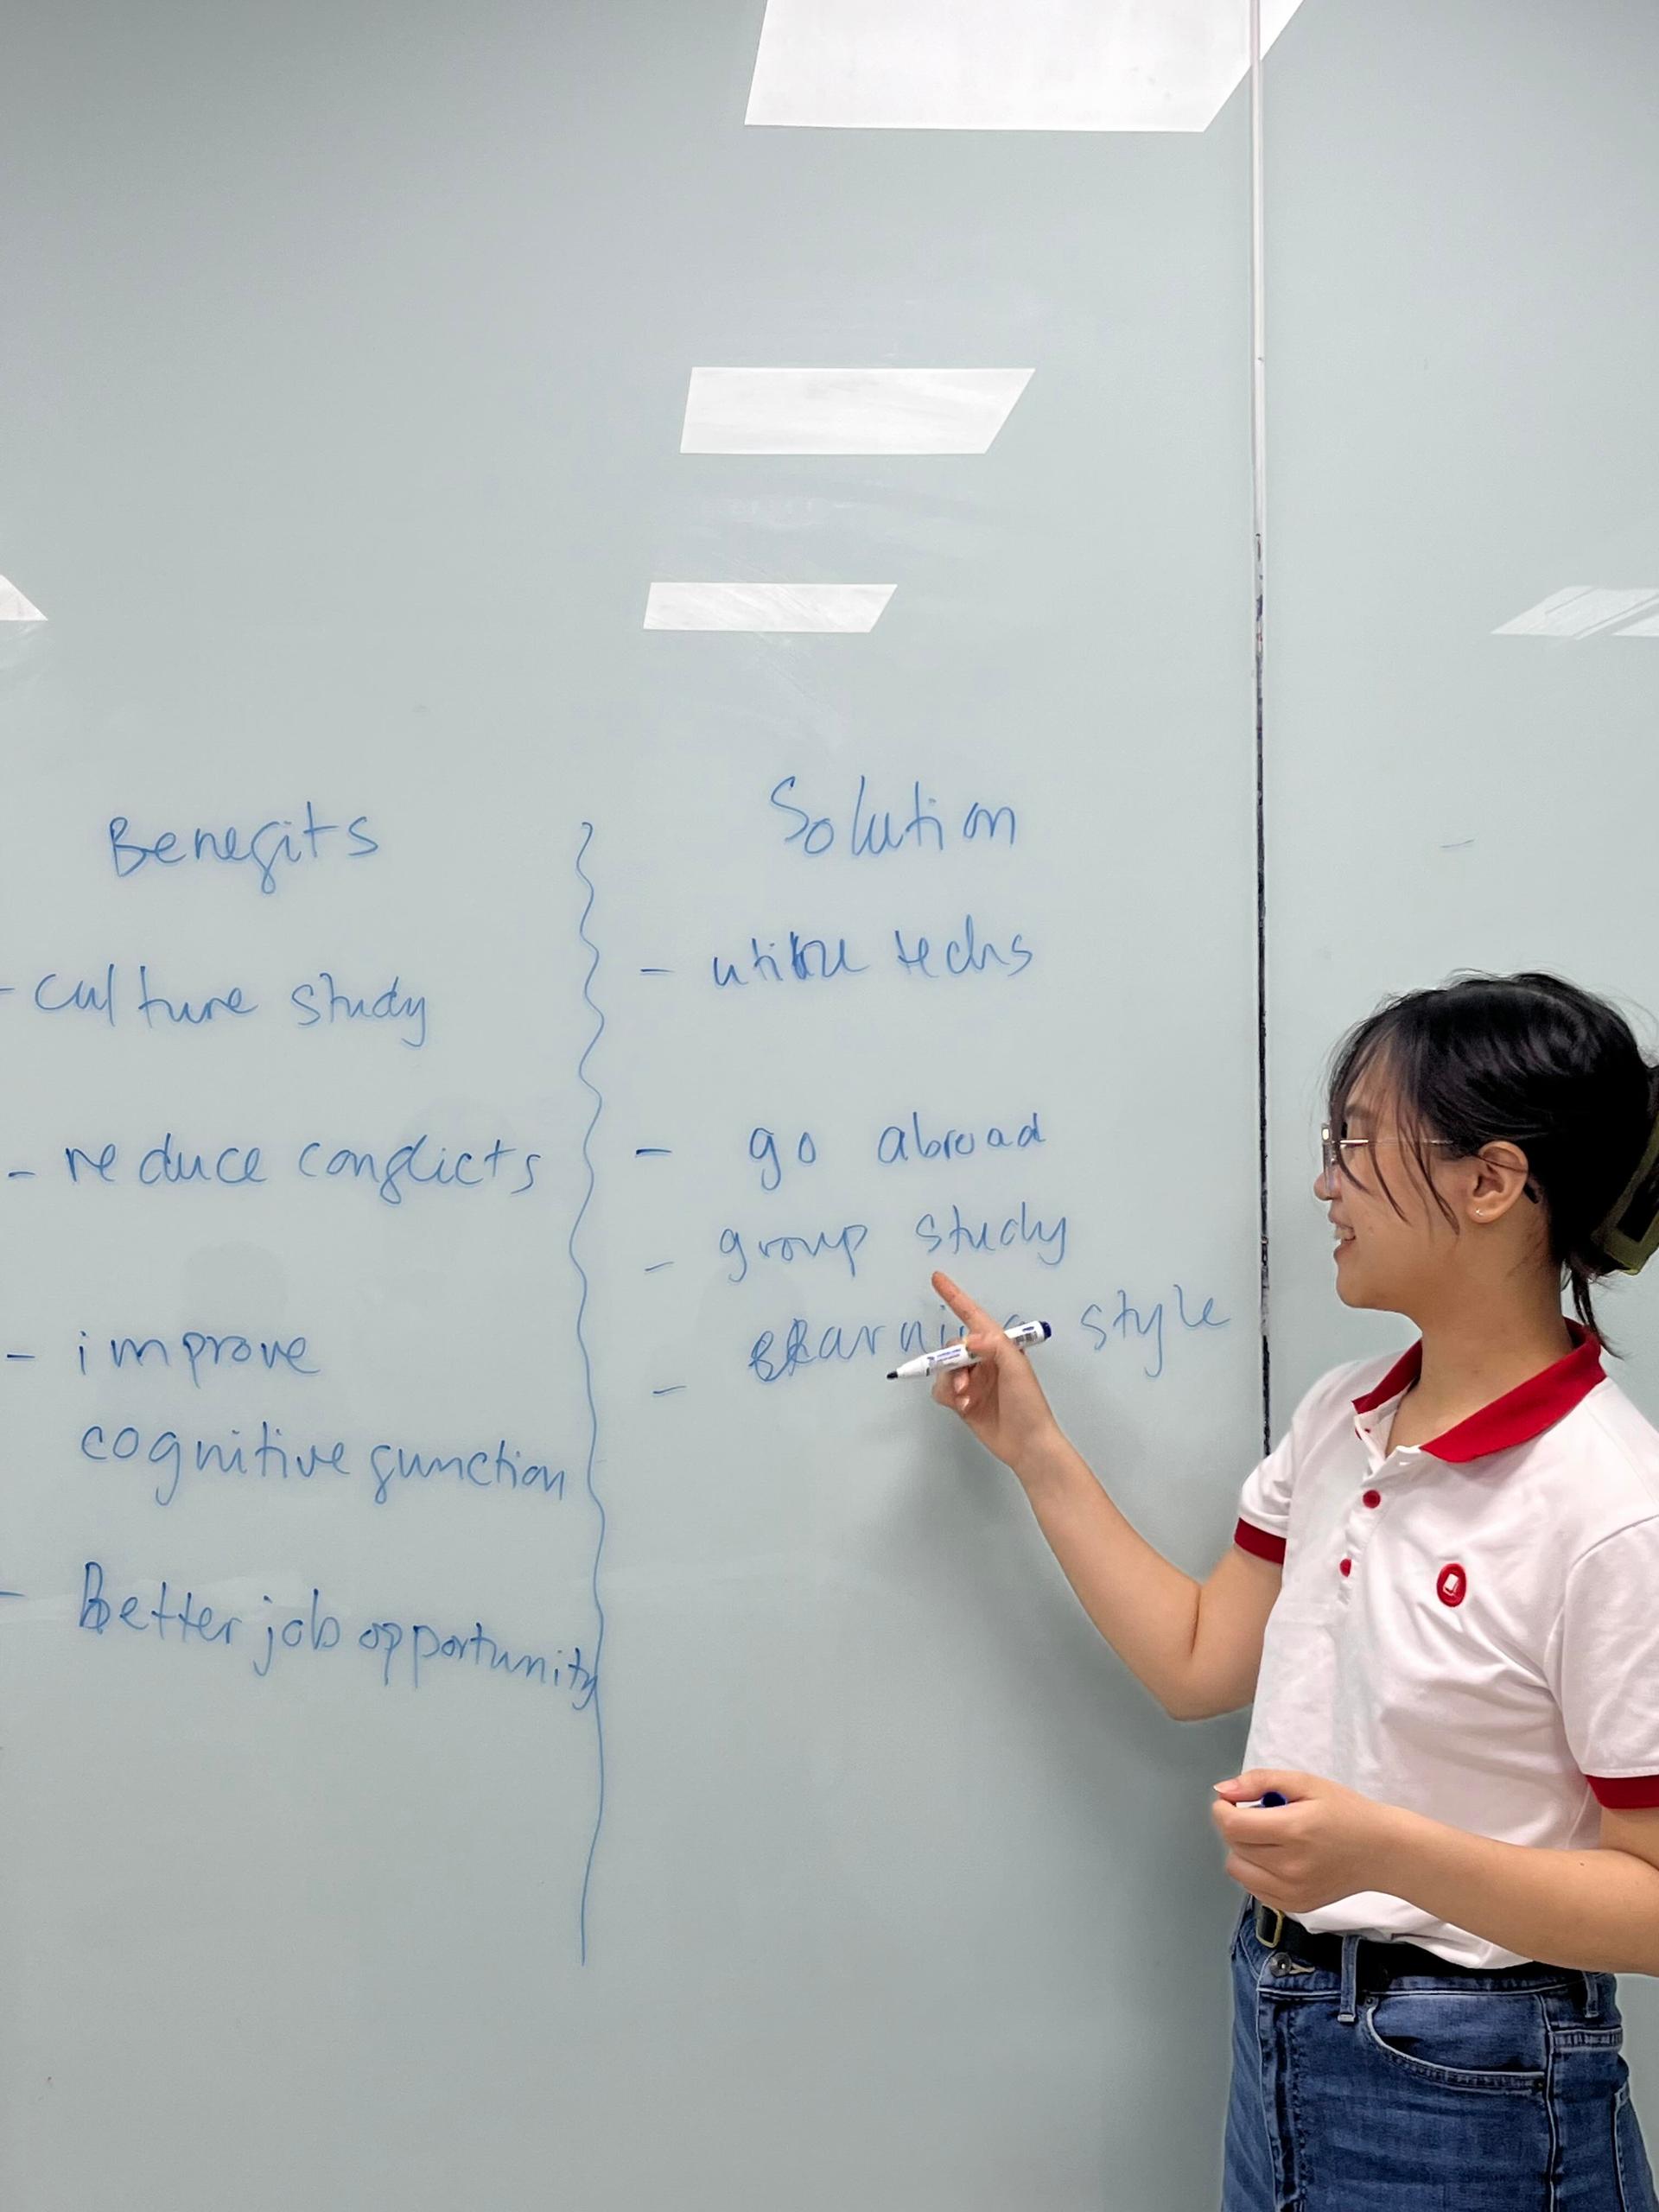 Benefits
- culture study
- reduce conflicts
- improve
cognitive function
- Better job opportunity
Solution
- utilize techs
- go abroad
- group study
- learning style